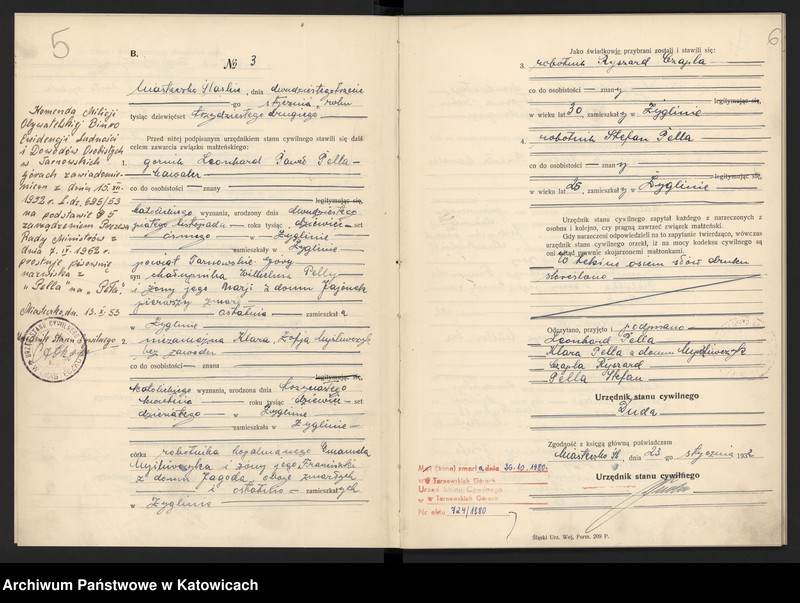 5
B.
№ 3
Miasteczko Śląskie, dnia dwudziestego trzeciego
stycznia, roku
tysiąc dziewięćset trzydziestego drugiego
Przed niżej podpisanym urzędnikiem stanu cywilnego stawili się dziś
celem zawarcia związku małżeńskiego:
1. górnik Leonhard Paweł Pella
kawaler
co do osobistości — znany
legitymując się,
katolickiego wyznania, urodzony dnia dwudziestego
piątego listopada — roku tysiąc dziewięć — set
ósmego — w Żyglinie
zamieszkały w Żyglinie
powiat Tarnowskie Góry
syn chałupnika Wilhelma Pelly
i żony jego Marji z domu Zająnek
pierwszy zmarł
ostatnia — zamieszkała
w Żyglinie
2. niezamężna Klara, Zofja Myśliwczyk
bez zawodu
co do osobistości — znana
legitymując się,
katolickiego wyznania, urodzona dnia
kwietnia — roku tysiąc dziewięć — set
dziesiątego — w Żyglinie
zamieszkała w Żyglinie
córka robotnika kopalnianego Emanuela
Myśliwczyka i żony jego Franciszki
z domu Jagoda, oboje zmarłych
i ostatnio — zamieszkałych
w Żyglinie
Komenda Milicji
Obywatelskiej Biuro
Ewidencji Ludności
i Dowodów Osobistych
w Tarnowskich
Górach zawiadomie-
niem z dnia 15.XII.
1952 r. L.dz. 695/53
na podstawie § 5
zarządzenia Prezesa
Rady Ministrów z
dnia
prostuje pisownię
nazwiska z
"Pella" na "Pela".
Miasteczko dn. 13.II.53
Urzędnik Stanu Cywilnego
6
Jako świadkowie przybrani zostali i stawili się:
3. robotnik Ryszard Czapla
co do osobistości — znany
legitymując się,
w wieku lat 30, zamieszkały w Żyglinie
4. robotnik Stefan Pella
co do osobistości — znany
legitymując się,
w wieku lat 25, zamieszkały w Żyglinie
Urzędnik stanu cywilnego zapytał każdego z narzeczonych z
osobna i kolejno, czy pragną zawrzeć związek małżeński.
Gdy narzeczeni odpowiedzieli na to zapytanie twierdząco, wówczas
urzędnik stanu cywilnego orzekł, iż na mocy kodeksu cywilnego są
oni odtąd prawnie skojarzonemi małżonkami.
To tekście osiem słów druku
skreślono
Odczytano, przyjęto i podpisano
Leonhard Pella
Klara Pella z domu Myśliwczyk
Czapla Ryszard
Pella Stefan
Urzędnik stanu cywilnego
Duda
Zgodność z księgą główną poświadczam
Miasteczko Śl., dnia 23 stycznia 1932
Urzędnik stanu cywilnego
Mąż (żona) zmarła dnia 30.10.1980
w Tarnowskich Górach
Urząd Stanu Cywilnego
w Tarnowskich Górach
Nr aktu 724/1980
Śląski Urz. Woj. Form. 209 P.
Archiwum Państwowe w Katowicach